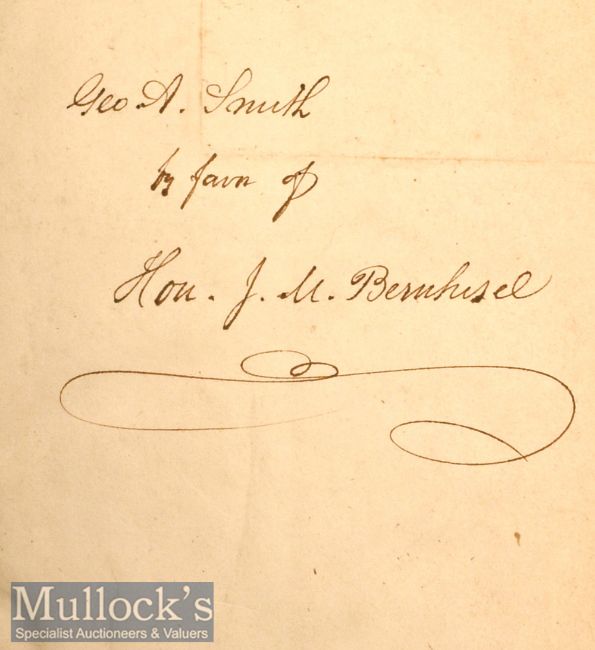 Geo. A. Smith
by favor of
Hon. J. M. Bernhisel
Mullock's
Specialist Auctioneers & Valuers